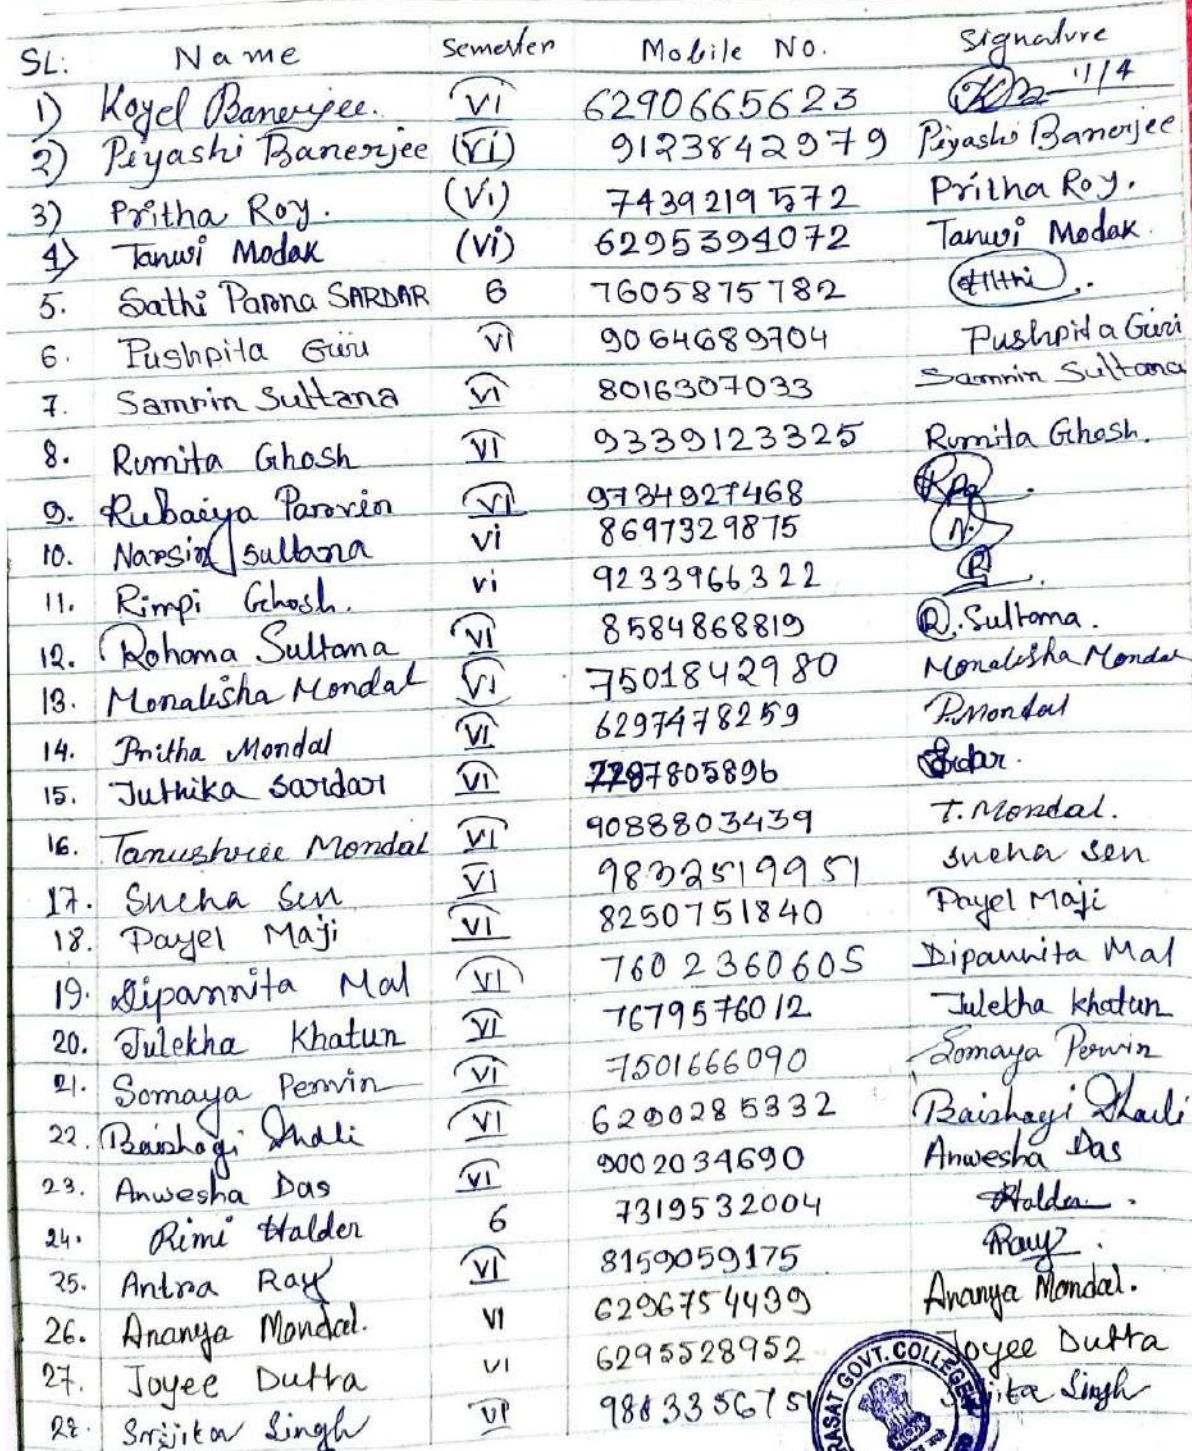 SL: Name Semester Mobile No. Signature
1) Koyel Banerjee. VI 6290665623 11/4
2) Piyashi Banerjee (VI) 9123842979 Piyashi Banerjee
3) Pritha Roy. (Vi) 7439219572 Pritha Roy.
4) Tanwi Modak (vi) 6295394072 Tanwi Modak.
5. Sathi Parna SARDAR 6 7605875782
6. Pushpita Giri VI 9064689704 Pushpita Giri
7. Samrin Sultana VI 8016307033 Samrin Sultana
8. Rumita Ghosh VI 9339123325 Rumita Ghosh.
9. Rubaiya Parvin VI 9734927468
10. Narsin Sultana vi 8697329875 N.
11. Rimpi Ghosh. vi 9233966322 R
12. Rohama Sultana VI 8584868819 R. Sultana.
13. Monalisha Mondal VI 7501842980 Monalisha Mondal
14. Pritha Mondal VI 6297478259 P.Mondal
15. Juthika Sardar VI 7805896
16. Tanushree Mondal VI 9088803439 T. Mondal.
17. Sneha Sen VI 9832519951 Sneha Sen
18. Payel Maji VI 8250751840 Payel Maji
19. Dipannita Mal VI 7602360605 Dipannita Mal
20. Julekha Khatun VI 7679576012 Julekha Khatun
21. Somaya Pervin Vi 7501666090 Somaya Pervin
22. Baishagi Dhali VI 6290285332 Baishagi Dhali
23. Anwesha Das VI 9002034690 Anwesha Das
24. Rimi Halder 6 7319532004 Halder.
25. Antra Ray VI 8159059175 Ray.
26. Ananya Mondal. VI 6296754499 Ananya Mondal.
27. Joyee Dutta VI 6295528952 Joyee Dutta
28. Srijita Singh VI Singh
RASAT GOVT. COLLEGE